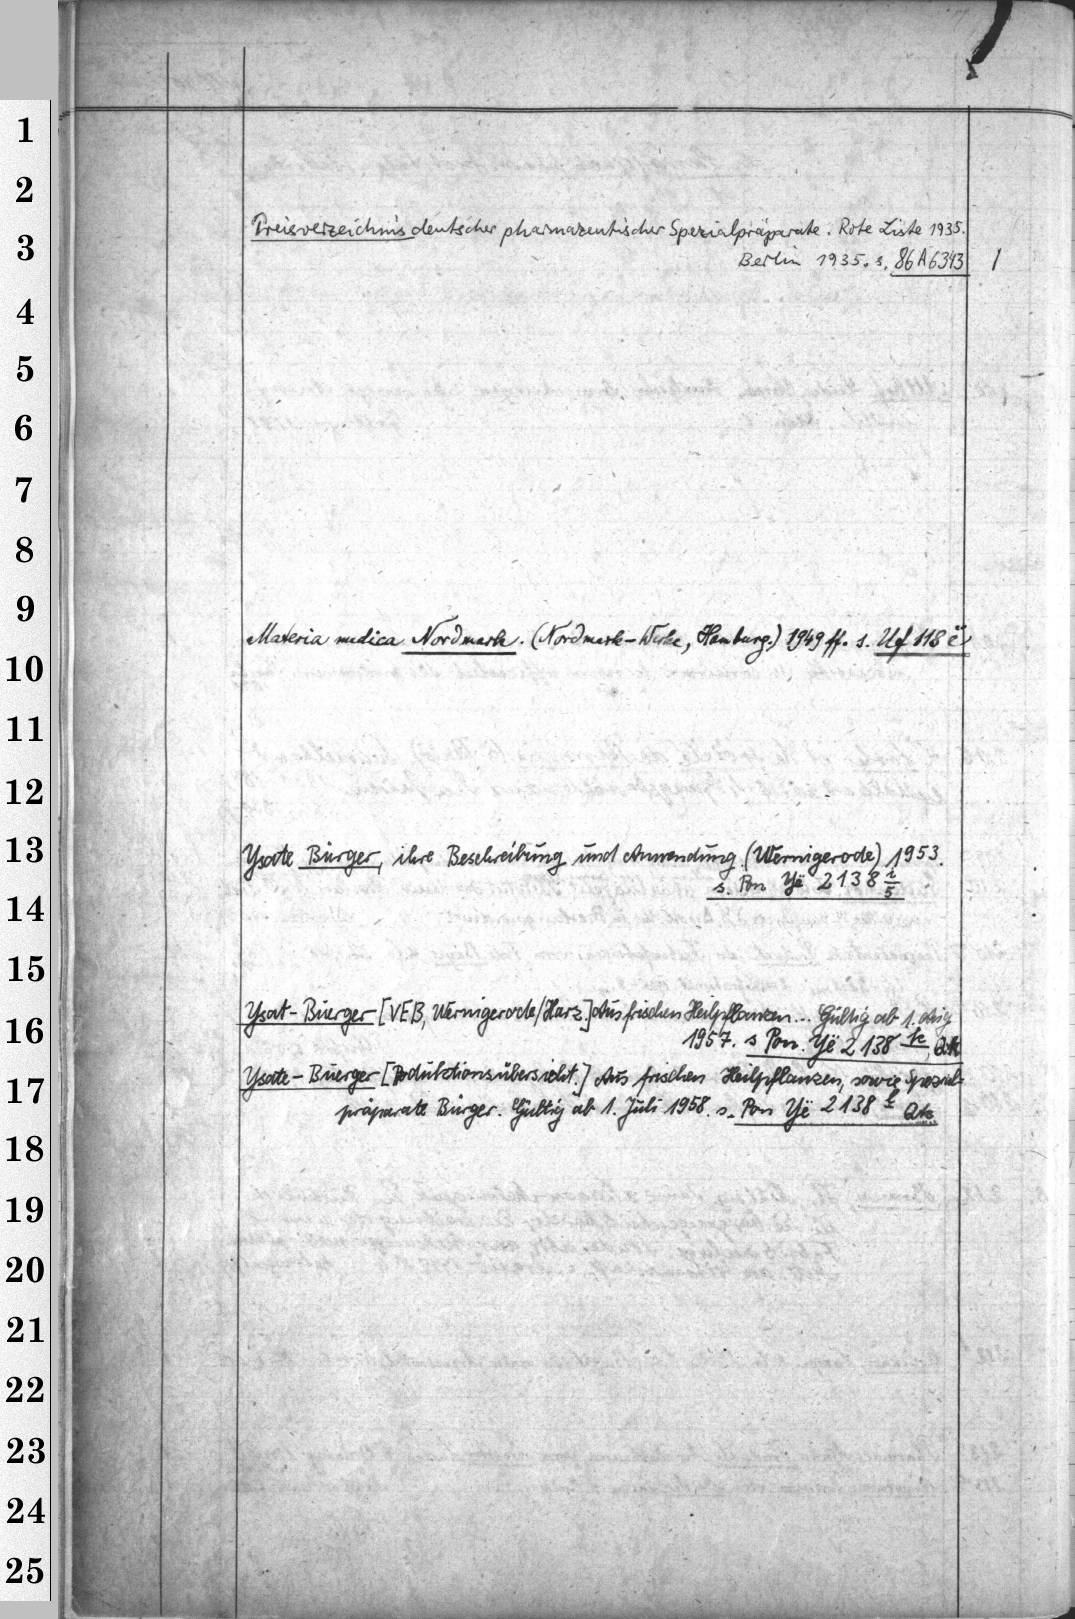 1
2
Preisverzeichnis deutscher pharmazeutischer Spezialpräparate. Rote Liste 1935.
3
Berlin 1935. s. 86 A 6343
4
5
6
7
8
9
Materia medica Nordmark. (Nordmark-Werke, Hamburg.) 1949 ff. s. Uf 118 č
10
11
12
13
Ysate Bürger, ihre Beschreibung und Anwendung. (Wernigerode) 1953.
s. Pon Yë 2138 i/5
14
15
Ysat-Buerger [VEB, Wernigerode/Harz.] Aus frischen Heilpflanzen... Gültig ab 1. Aug
16
1957. s Pon. Yë 2 138 k
17
Ysate-Buerger [Produktionsübersicht.] Aus frischen Heilpflanzen, sowie Spezial-
präparate Bürger. Gültig ab 1. Juli 1958. s. Pon Yë 2138 l
18
19
20
21
22
23
24
25